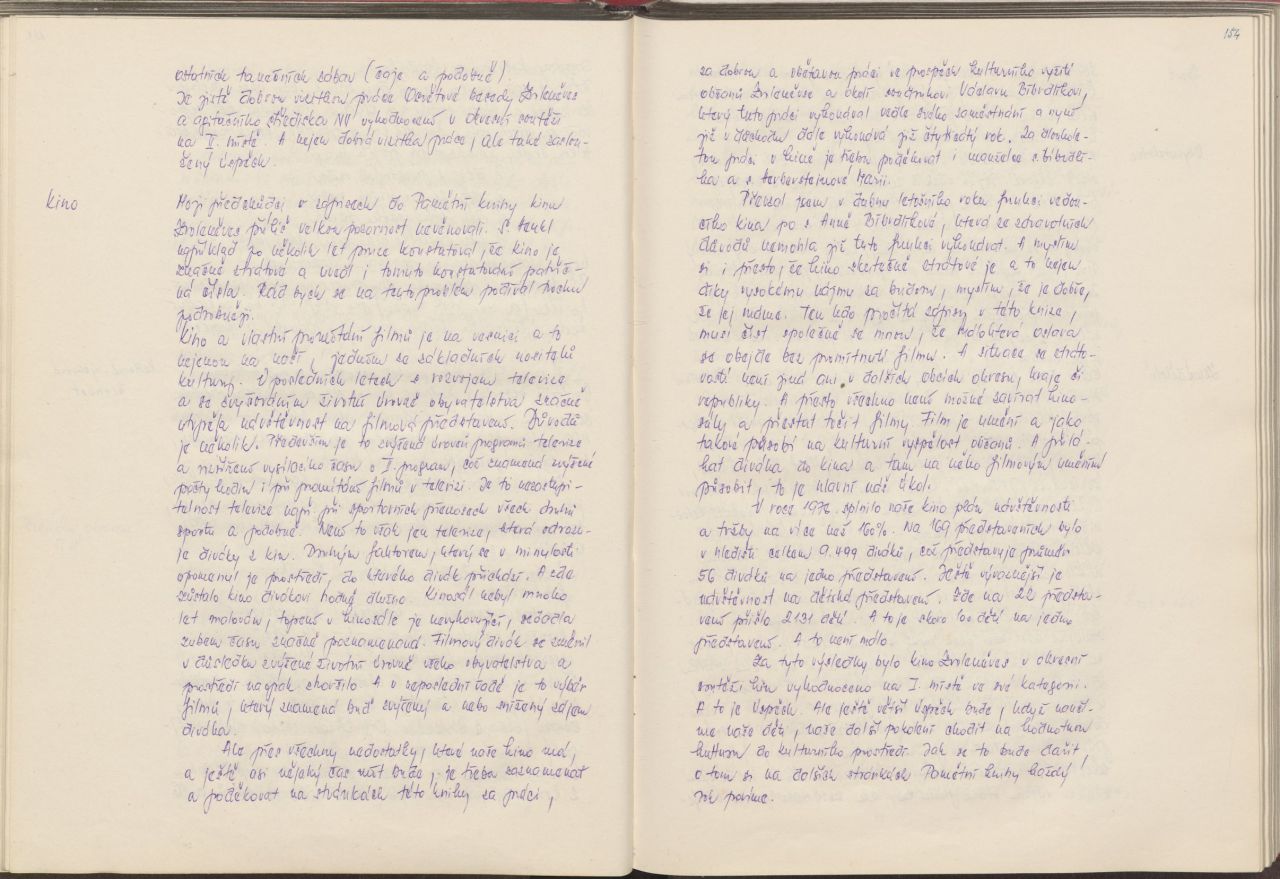 ostatních tanečních zábav (čaje a podobně).
Je jistě dobrou vizitkou práce Osvětové besedy Zvoleněves
a agitačního střediska NV vyhodnocení v okresní soutěži
na II. místě. A nejen dobrá vizitka práce, ale také zaslou-
žený úspěch.
kino
Moji předchůdci v zápisech do Pamětní knihy kinu
Zvoleněves příliš velkou pozornost nevěnovali. S.
například po několik let pouze konstatoval, že kino je
značně ztrátové a uvedl i tomuto konstatování patřič-
ná čísla. Rád bych se na tento problém podíval trochu
podrobněji.
Kino a vlastní promítání filmů je na vesnici a to
nejenom na naší, jedním ze základních nositelů
kultury. V posledních letech s rozvojem televize
a se zvyšováním životní úrovně obyvatelstva značně
utrpěla návštěvnost na filmová představení. Důvodů
je několik. Především je to zvýšená úroveň programů televize
a rozšíření vysílacího času o II. program, což znamená zvýšené
počty hodin i při promítání filmů v televizi. Je to nezastupi-
telnost televize např. při sportovních přenosech všech druhů
sportu a podobně. Není to však jen televize, která odrazu-
je diváky z kin. Druhým faktorem, který se v minulosti
opomenul je prostředí, do kterého divák přichází. A zde
zůstalo kino divákovi hodně dlužno. Kinosál nebyl mnoho
let malován, topení v kinosále je nevyhovující, sedadla
zubem času značně poznamenaná. Filmový divák se změnil
v důsledku zvýšené životní úrovně všeho obyvatelstva a
prostředí naopak zhoršilo. A v neposlední řadě je to výběr
filmů, který znamená buď zvýšený a nebo snížený zájem
diváka.
Ale přes všechny nedostatky, které naše kino má,
a ještě asi nějaký čas mít bude, je třeba zaznamenat
a poděkovat na stránkách této knihy za práci,
154
za dobrou a obětavou práci ve prospěch kulturního vyžití
občanů Zvoleněvse a okolí soudruhovi Václavu Bibrdlíkovi,
který tuto práci vykonával vedle svého zaměstnání a nyní
již v důchodu dále vykonává již čtyřicátý rok. Za dlouhole-
tou práci v kině je třeba poděkovat i manželce s. Bibrdlí-
ka a s. Marii.
Převzal jsem v dubnu letošního roku funkci vedou-
cího kina po s. Anně Bibrdlíkové, která ze zdravotních
důvodů nemohla již tuto funkci vykonávat. A myslím
si i přesto, že kino skutečně ztrátové je a to nejen
díky vysokému nájmu za budovu, myslím, že je dobře,
že jej máme. Ten kdo pročítá zápisy v této knize,
musí číst společně se mnou, že málokterá oslava
se obejde bez promítnutí filmu. A situace se ztráto-
vostí není jiná ani v dalších obcích okresu, kraje či
republiky. A přesto všechno není možné zavírat kino-
sály a přestat točit filmy. Film je umění a jako
takové působí na kulturní vyspělost občanů. A přilá-
kat diváka do kina a tam na něho filmovým uměním
působit, to je hlavní náš úkol.
V roce 1976 splnilo naše kino plán návštěvnosti
a tržby na více než 160%. Na 169 představeních bylo
v hledišti celkem 9.499 diváků, což představuje průměr
56 diváků na jedno představení. Ještě výraznější je
návštěvnost na dětská představení. Zde na 22 předsta-
vení přišlo 2191 dětí. A to je skoro 100 dětí na jedno
představení. A to není málo.
Za tyto výsledky bylo kino Zvoleněves v okresní
soutěži kin vyhodnoceno na I. místě ve své kategorii.
A to je úspěch. Ale ještě větší úspěch bude, když naučí-
me naše děti, naše další pokolení chodit na hodnotnou
kulturu do kulturního prostředí. Jak se to bude dařit
o tom si na dalších stránkách Pamětní knihy každý
rok povíme.